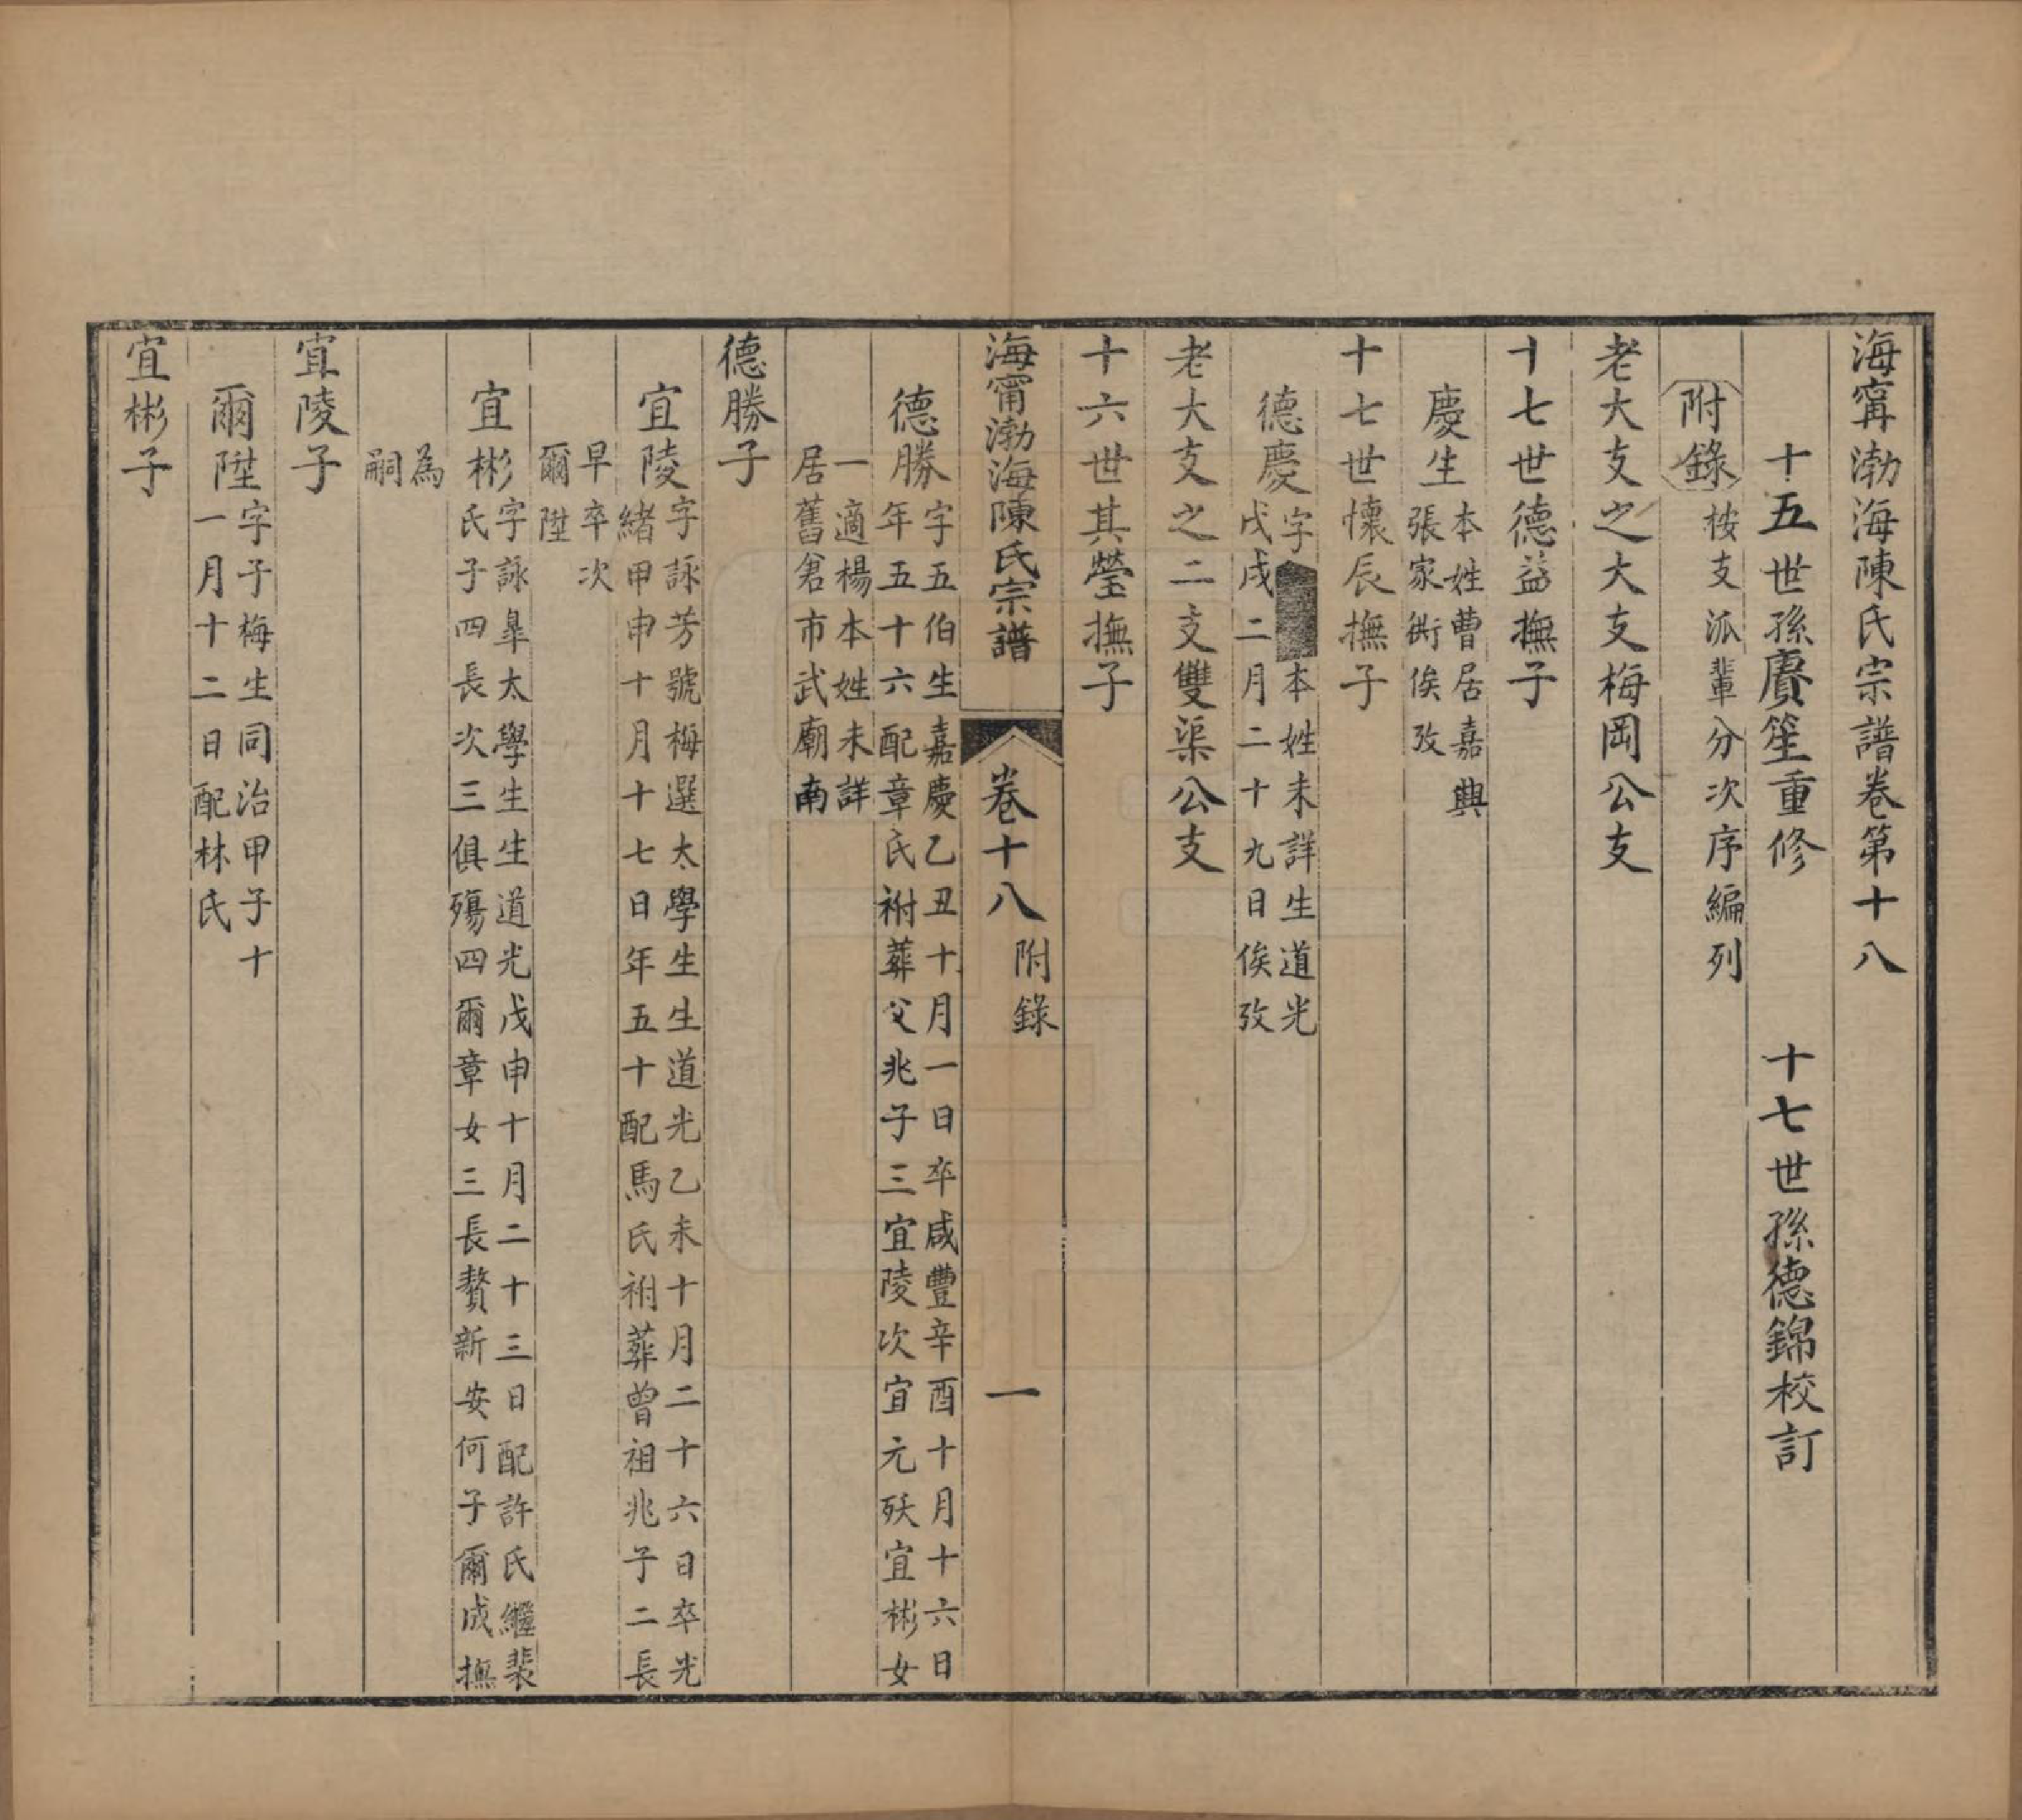 海甯渤海陳氏宗譜卷第十八
十五世孫賡笙重修　十七世孫德錦校訂
附錄　按支派輩分次序編列
老大支之大支梅岡公支
十七世德益撫子
慶生　本姓曹居嘉興
張家衖俟攷
十七世懷辰撫子
德慶　字　本姓未詳生道光
戊戌二月二十九日俟攷
老大支之二支雙渠公支
十六世其瑩撫子
海甯渤海陳氏宗譜　卷十八　附錄　一
德勝　字五伯生嘉慶乙丑十月一日卒咸豐辛酉十月十六日
年五十六配章氏祔葬父兆子三宜陵次宜元殀宜彬女
一適楊本姓未詳
居舊倉市武廟南
德勝子
宜陵　字詠芳號梅選太學生生道光乙未十月二十六日卒光
緒甲申十月十七日年五十配馬氏祔葬曾祖兆子二長
早卒次
爾陞
宜彬　字詠臯太學生生道光戊申十月二十三日配許氏繼裴
氏子四長次三俱殤四爾章女三長贅新安何子爾成撫
為
嗣
宜陵子
爾陞　字子梅生同治甲子十
一月十二日配林氏
宜彬子